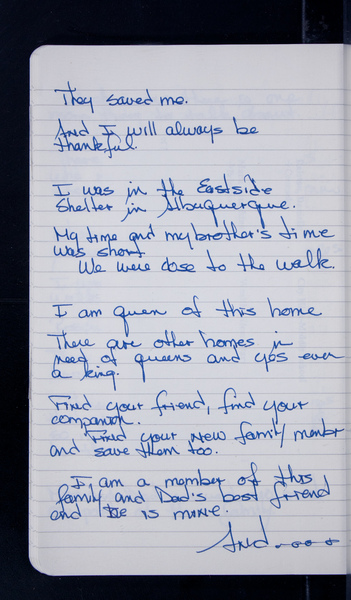 They saved me.
And, I will always be
thankful.
I was in the Eastside
Shelter in Albuquerque.
My time and my brother's time
was short
We were close to the walk.
I am queen of this home
There are other homes in
need of queens and yes even
a king.
Find your friend, find your
companion.
Find your new family member
and save them too.
I am a member of this
family and Dad's best friend
and He is mine.
And....